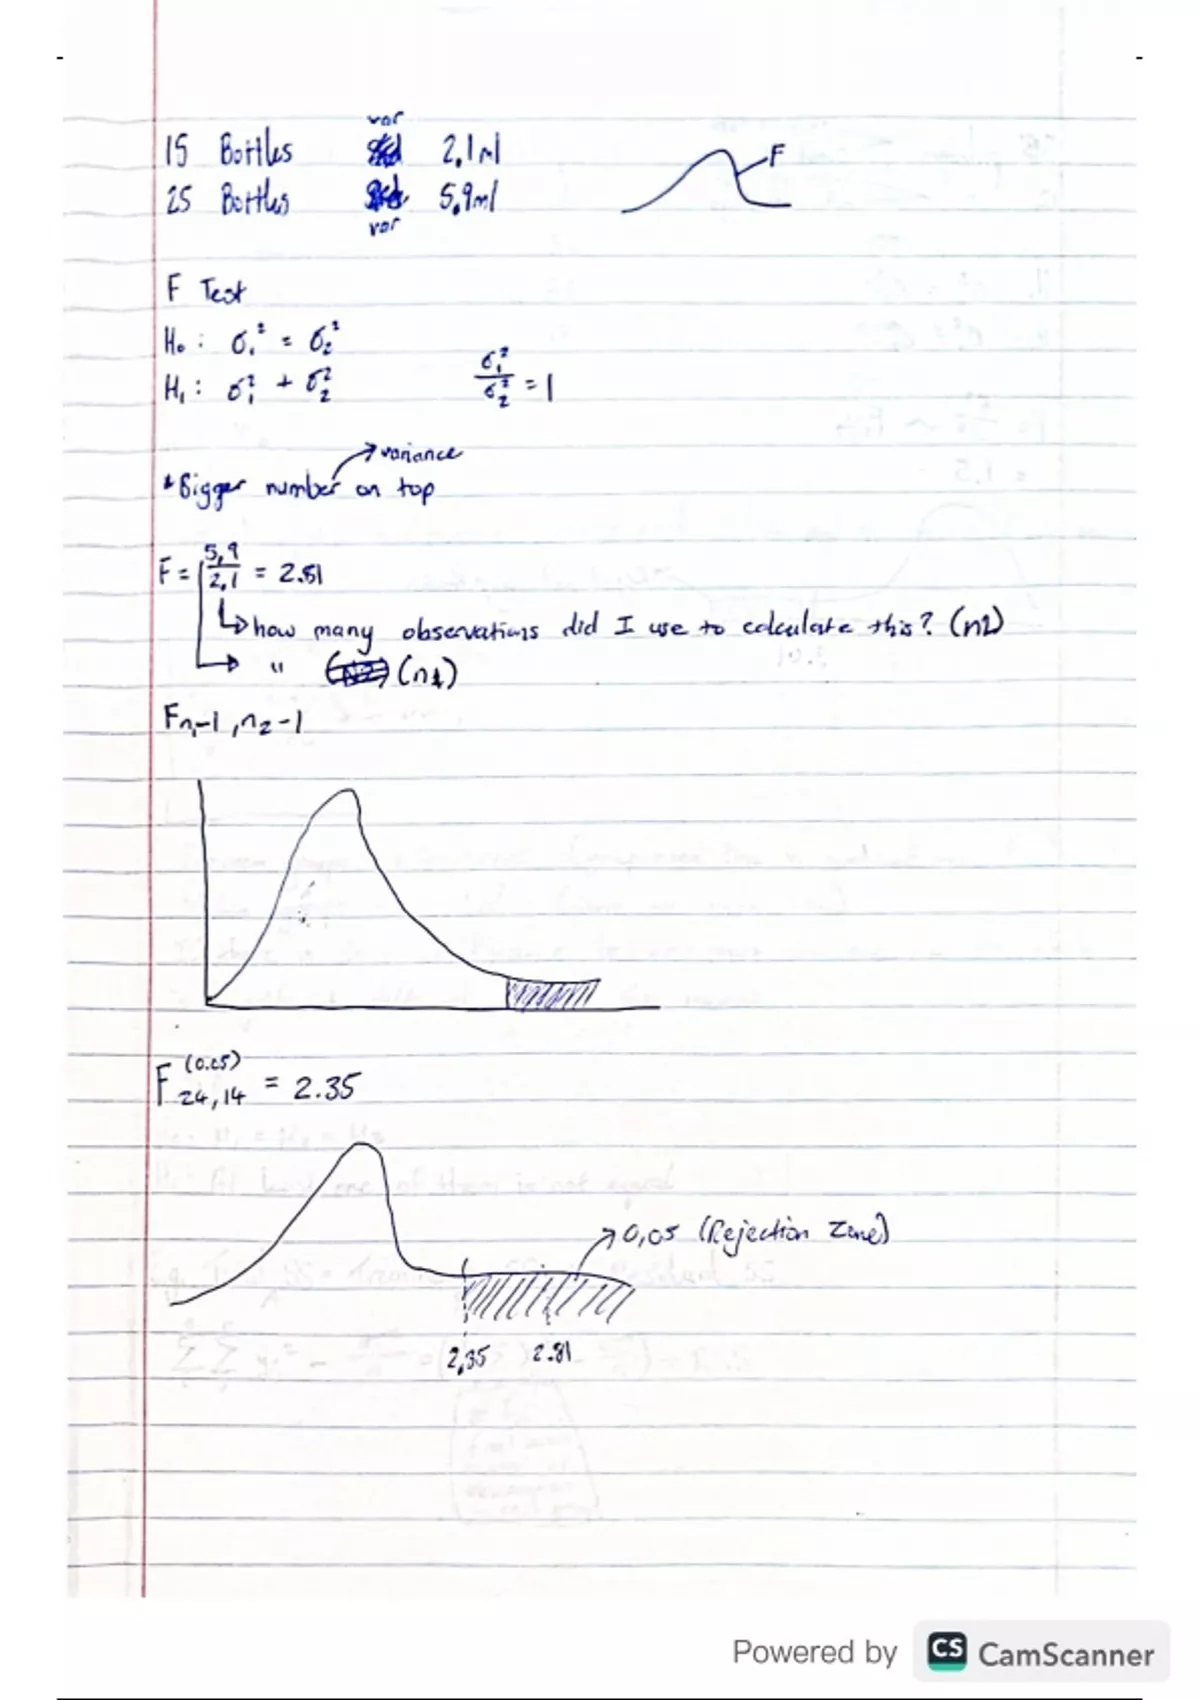 var
15 Bottles 2,1ml
F
25 Bottles 5,9ml
var
F Test
H₀ : σ₁² = σ₂²
H₁ : σ₁² + σ₂²
σ₁²/σ₂² = 1
→ variance
* Bigger number on top
F = 5,9/2,1 = 2.81
↳ how many observations did I use to calculate this? (n2)
→ " (n1)
Fn₁-1, n₂-1
F (0.05) 24,14 = 2.35
→ 0,05 (Rejection Zone)
2,35 2.81
Powered by CS CamScanner